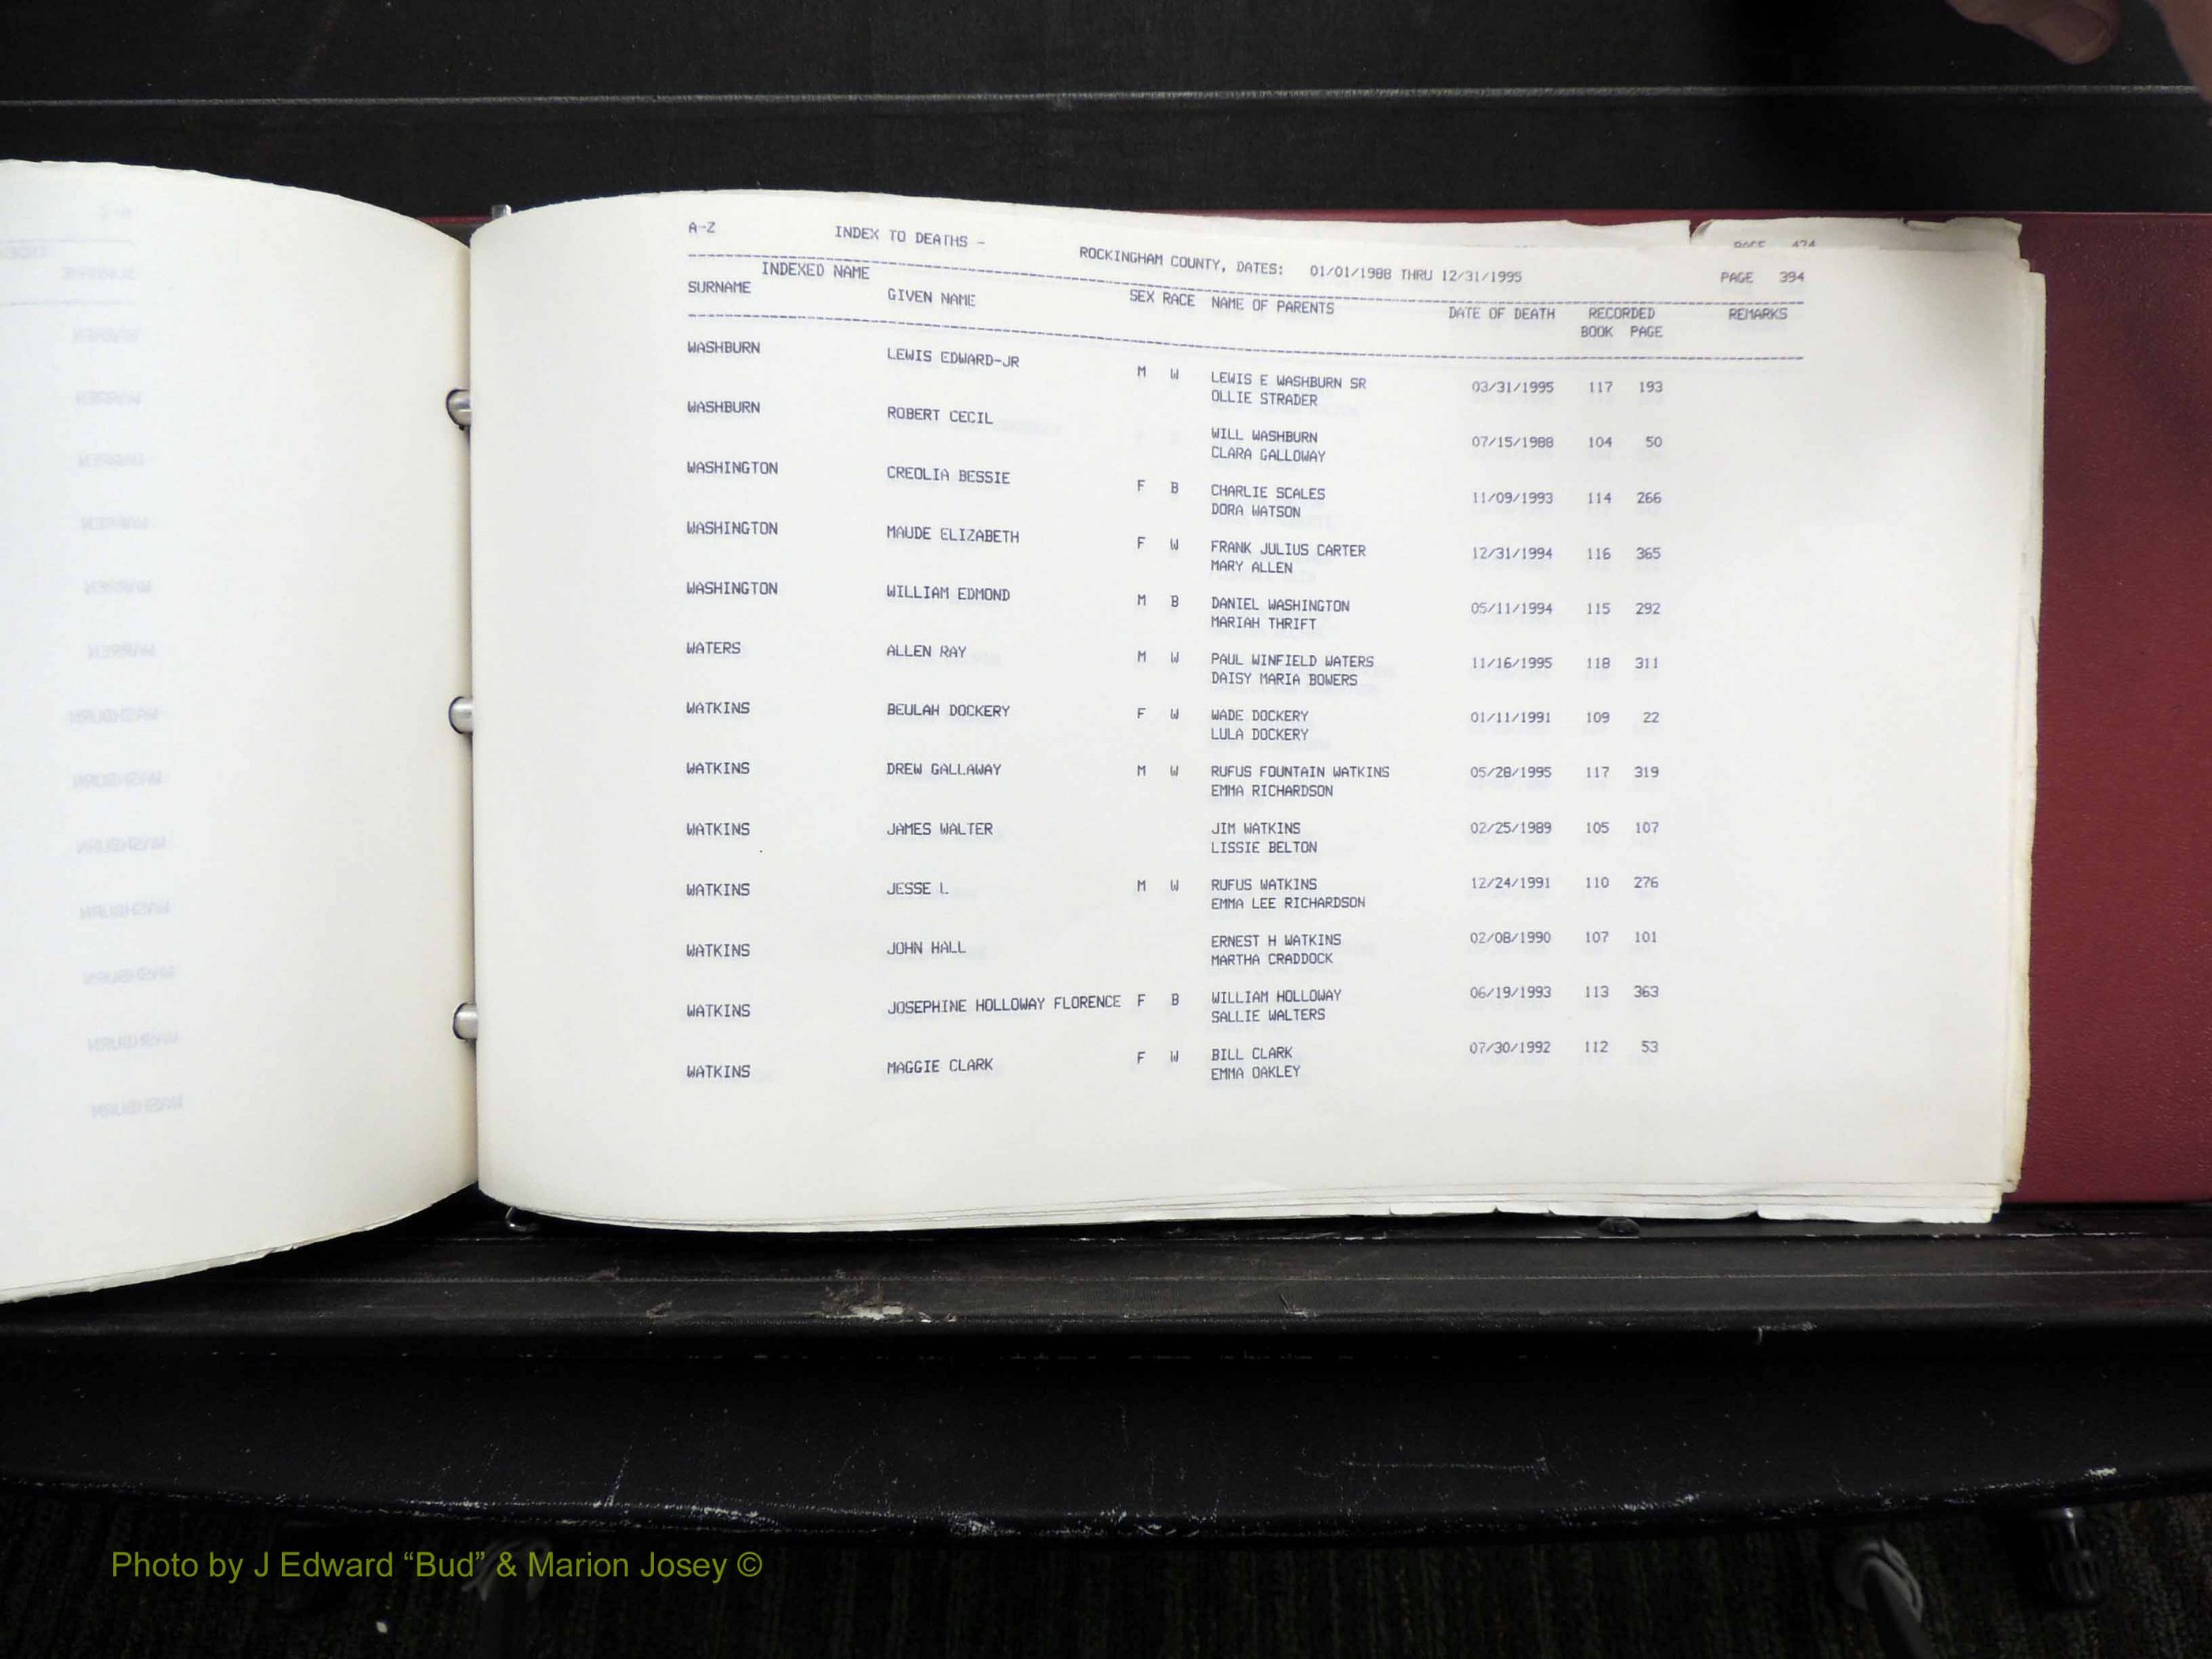 PAGE 474
A-Z INDEX TO DEATHS - ROCKINGHAM COUNTY, DATES: 01/01/1988 THRU 12/31/1995 PAGE 394
INDEXED NAME
SURNAME GIVEN NAME SEX RACE NAME OF PARENTS DATE OF DEATH RECORDED REMARKS
BOOK PAGE
WASHBURN LEWIS EDWARD-JR M W LEWIS E WASHBURN SR 03/31/1995 117 193
OLLIE STRADER
WASHBURN ROBERT CECIL WILL WASHBURN 07/15/1988 104 50
CLARA GALLOWAY
WASHINGTON CREOLIA BESSIE F B CHARLIE SCALES 11/09/1993 114 266
DORA WATSON
WASHINGTON MAUDE ELIZABETH F W FRANK JULIUS CARTER 12/31/1994 116 365
MARY ALLEN
WASHINGTON WILLIAM EDMOND M B DANIEL WASHINGTON 05/11/1994 115 292
MARIAH THRIFT
WATERS ALLEN RAY M W PAUL WINFIELD WATERS 11/16/1995 118 311
DAISY MARIA BOWERS
WATKINS BEULAH DOCKERY F W WADE DOCKERY 01/11/1991 109 22
LULA DOCKERY
WATKINS DREW GALLAWAY M W RUFUS FOUNTAIN WATKINS 05/28/1995 117 319
EMMA RICHARDSON
WATKINS JAMES WALTER JIM WATKINS 02/25/1989 105 107
LISSIE BELTON
WATKINS JESSE L M W RUFUS WATKINS 12/24/1991 110 276
EMMA LEE RICHARDSON
WATKINS JOHN HALL ERNEST H WATKINS 02/08/1990 107 101
MARTHA CRADDOCK
WATKINS JOSEPHINE HOLLOWAY FLORENCE F B WILLIAM HOLLOWAY 06/19/1993 113 363
SALLIE WALTERS
WATKINS MAGGIE CLARK F W BILL CLARK 07/30/1992 112 53
EMMA OAKLEY
Photo by J Edward “Bud” & Marion Josey ©